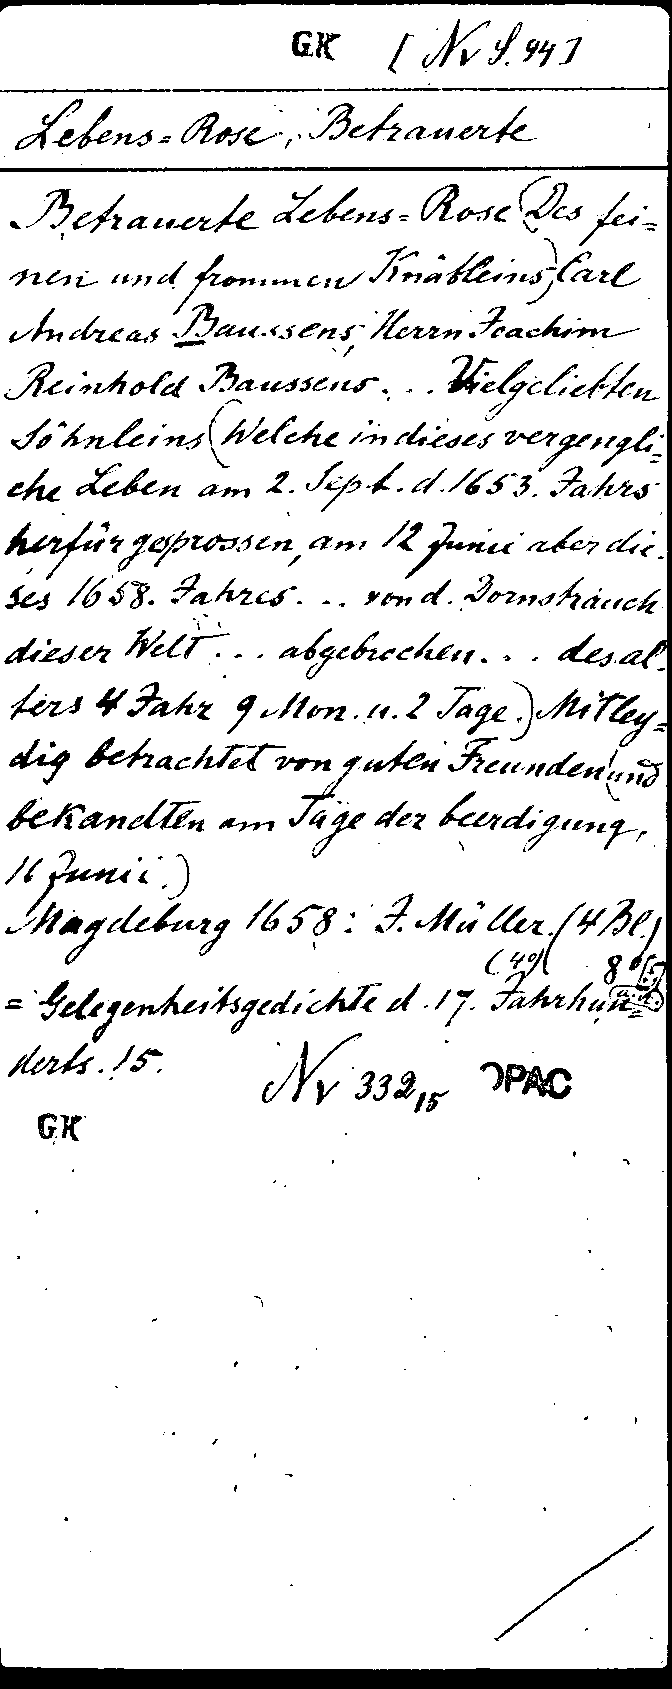 GK [Nv S. 94]
Lebens=Rose, Betrauerte
Betrauerte Lebens=Rose (Des fei=
nen und frommen Knäbleins) Carl
Andreas Baussens, Herrn Joachim
Reinhold Baussens... Vielgeliebten
Söhnleins (Welche in dieses vergengli=
che Leben am 2. Sept. d. 1653. Jahrs
herfür gesprossen, am 12 Junii aber die-
ses 1658. Jahres... von d. Dornstrauch
dieser Welt... abgebrochen... des al-
ters 4 Jahr 9 Mon. u. 2 Tage.) Mitley=
dig betrachtet von guten Freunden (und
bekandten am Tage der beerdigung,
16 Junii.)
Magdeburg 1658: J. Müller. (4 Bl.)
(4°) 8°
= Gelegenheitsgedichte d. 17. Jahrhun=
derts. 15.
Nv 332,15 OPAC
GK